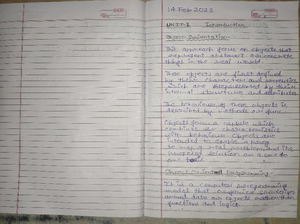 14 Feb 2023
UNIT-1 Introduction
Object Orientation
This approach focus on objects that
represent abstract or concrete
things in the real world.
These objects are first defined
by their character and properties
which are represented by their
internal structure and attributes
The behaviour of these objects is
described by methods
Objects forms a capsule which
combines the characteristics
with behaviour. Objects are
intended to
to map a real problem and the
proposed solution on a one to
one basis.
Object Oriented Programming
It is a computer programming
model that organizes
around data or objects rather than
functions and logic.